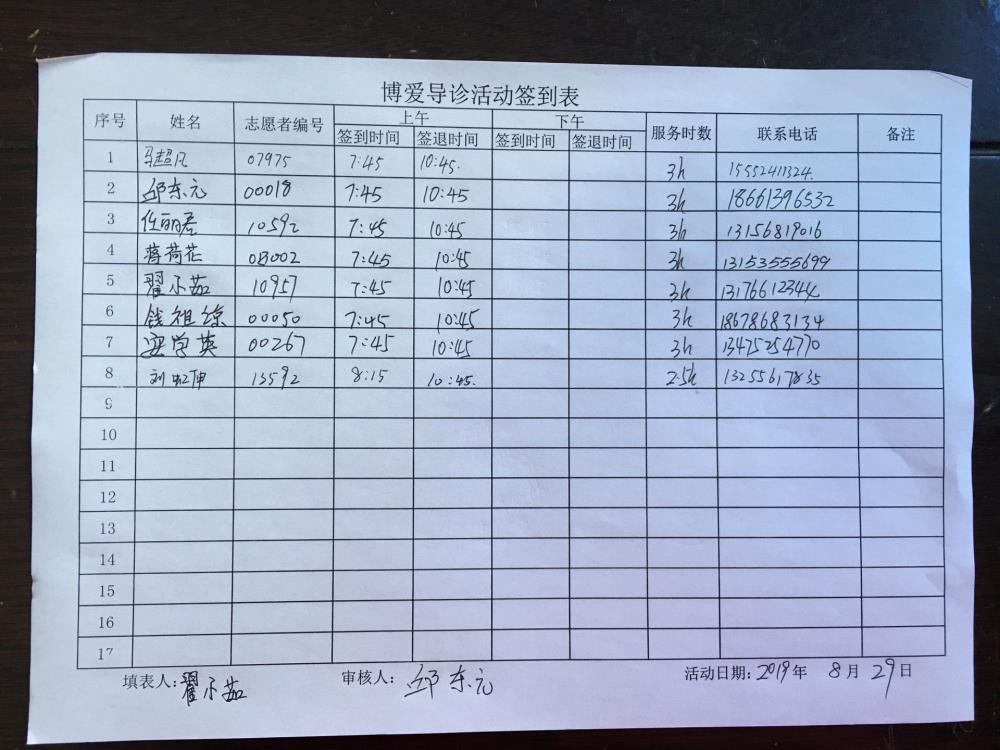 博爱导诊活动签到表
序号 姓名 志愿者编号 上午 下午 服务时数 联系电话 备注
签到时间 签退时间 签到时间 签退时间
1 马超凡 07975 7:45 10:45. 3h 15552411324.
2 邱东元 00018 7:45 10:45 3h 18661396532
3 任丽君 10592 7:45 10:45 3h 13156819016
4 蒋荷花 08002 7:45 10:45 3h 13153555699
5 翟小茹 10957 7:45 10:45 3h 13176612344
6 钱祖综 00050 7:45 10:45 3h 18678683134
7 安学英 00267 7:45 10:45 3h 13475254770
8 刘 13592 8:15 10:45. 2.5h 13255617835
9
10
11
12
13
14
15
16
17
填表人:翟小茹 审核人:邱东元 活动日期:2019年 8月 29日